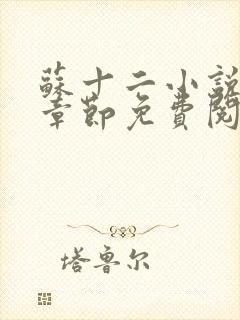 蘇十二小說
章節免費閱
塔魯尔